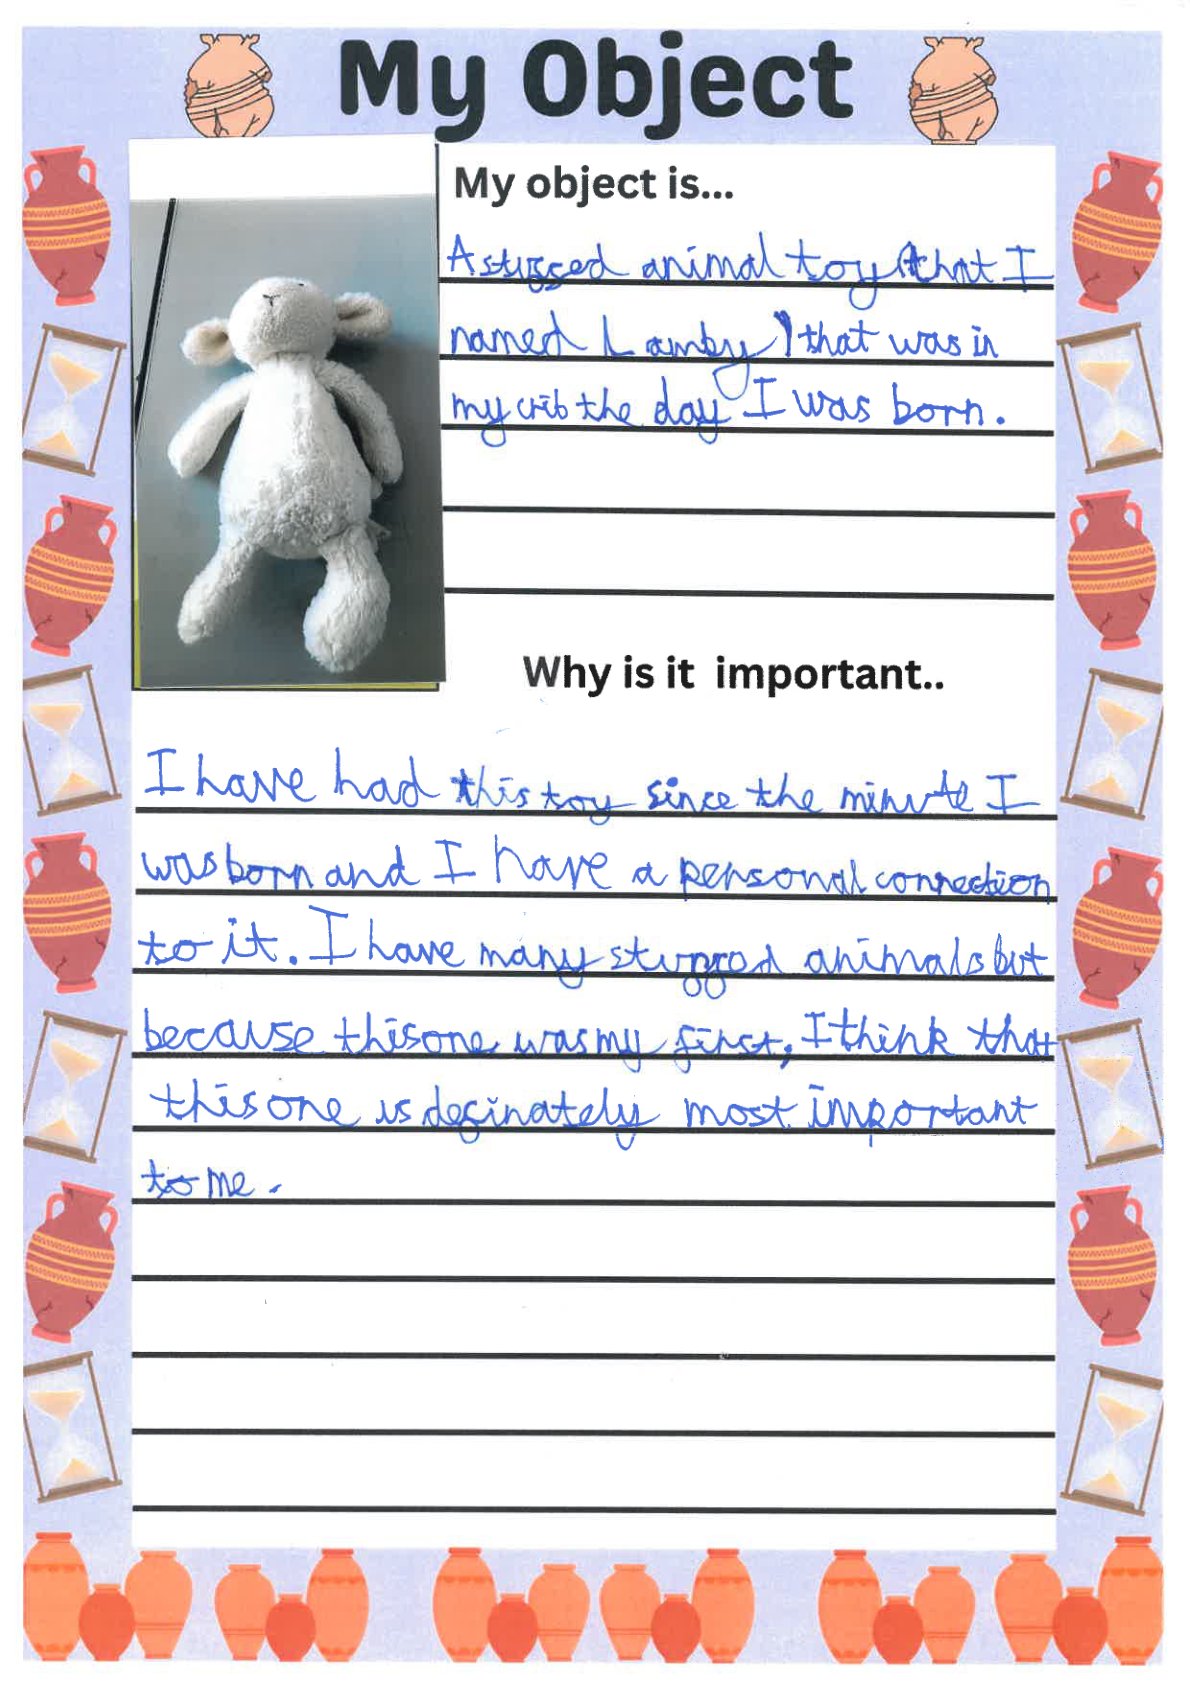 My Object
My object is...
A stuffed animal toy (that I
named Lamby) that was in
my crib the day I was born.
Why is it important..
I have had this toy since the minute I
was born and I have a personal connection
to it. I have many stuffed animals but
because this one was my first, I think that
this one is definately most important
to me.